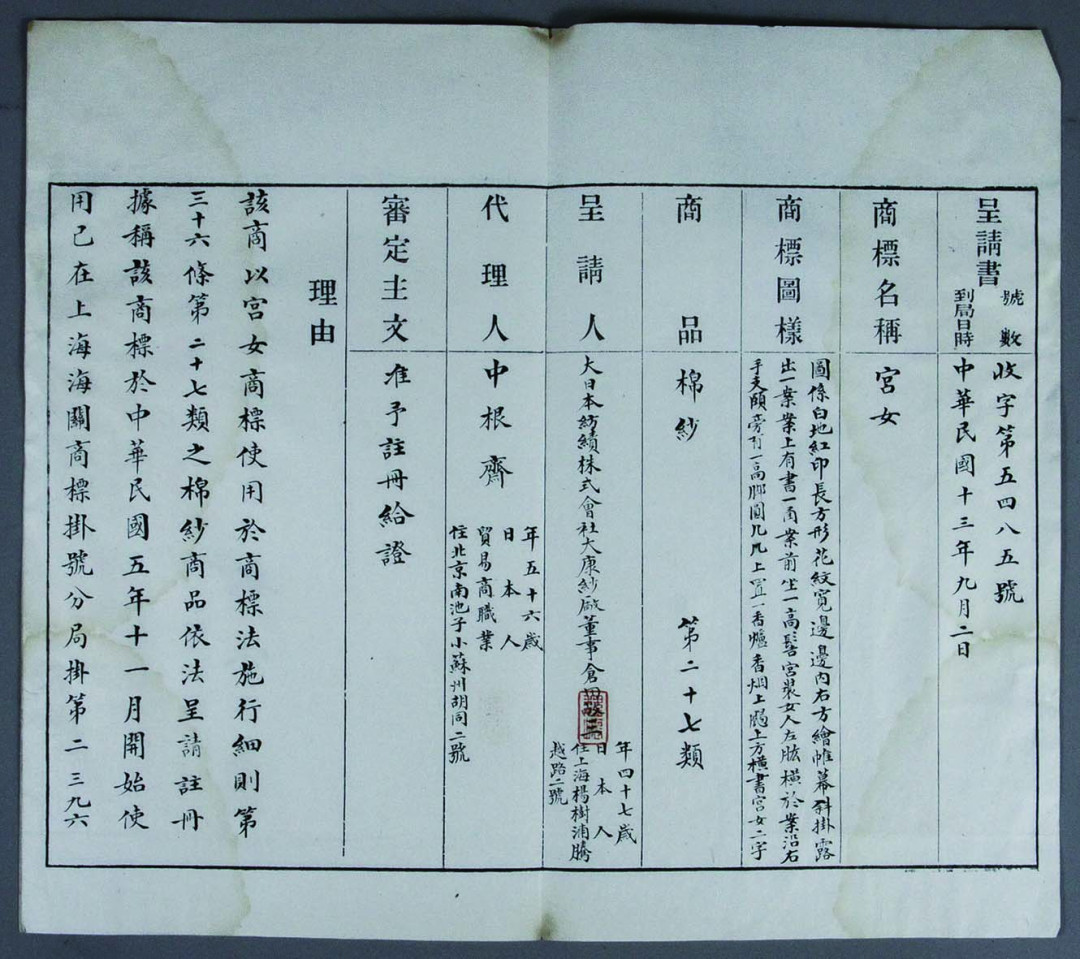 呈請書
號數
收字第五四八五號
到局日時
中華民國十三年九月二日
商標名稱
宮女
商標圖樣
圖係白地紅印長方形花紋寬邊邊內右方繪帷幕斜掛露
出一案案上有書一角案前坐一高髻宮裝女人左肱橫於案沿右
手支頤旁有一高腳圓几几上置一香爐香烟上騰上方橫書宮女二字
商品
棉紗
第二十七類
呈請人
大日本紡績株式會社大康紗廠董事倉
年四十七歲
日本人
住上海楊樹浦騰
越路二號
代理人
中根齋
年五十六歲
日本人
貿易商職業
住北京南池子小蘇州胡同二號
審定主文
准予註冊給證
理由
該商以宮女商標使用於商標法施行細則第
三十六條第二十七類之棉紗商品依法呈請註冊
據稱該商標於中華民國五年十一月開始使
用已在上海海關商標掛號分局掛第二三九六